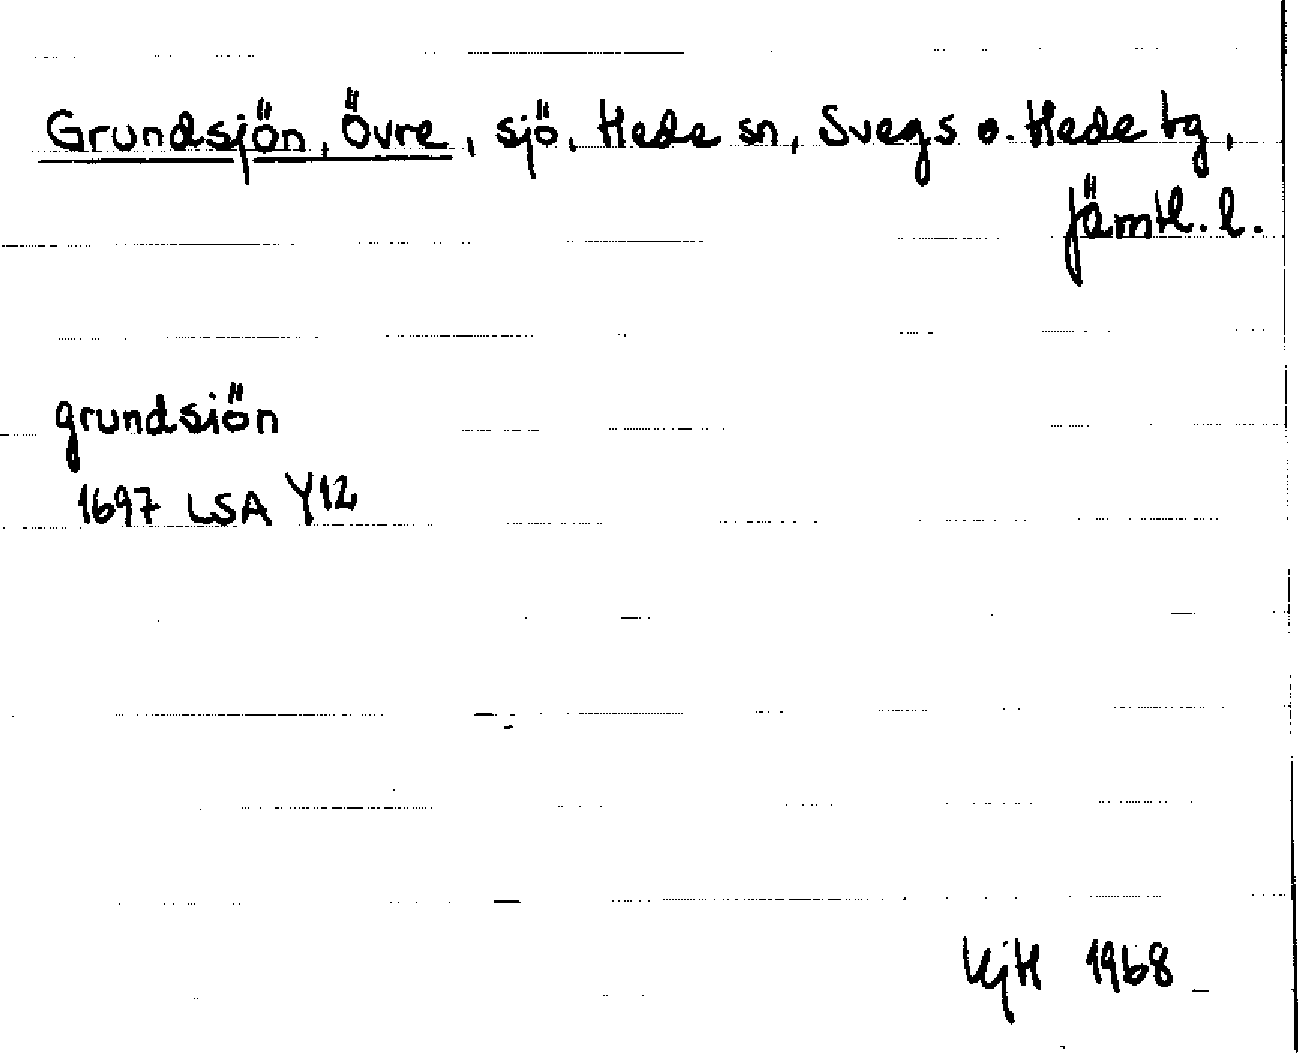 Grundsjön, Övre, sjö. Hede sn, Svegs o. Hede tg,
Jämtl. l.
grundsiön
1697 LSA Y12
KjH 1968